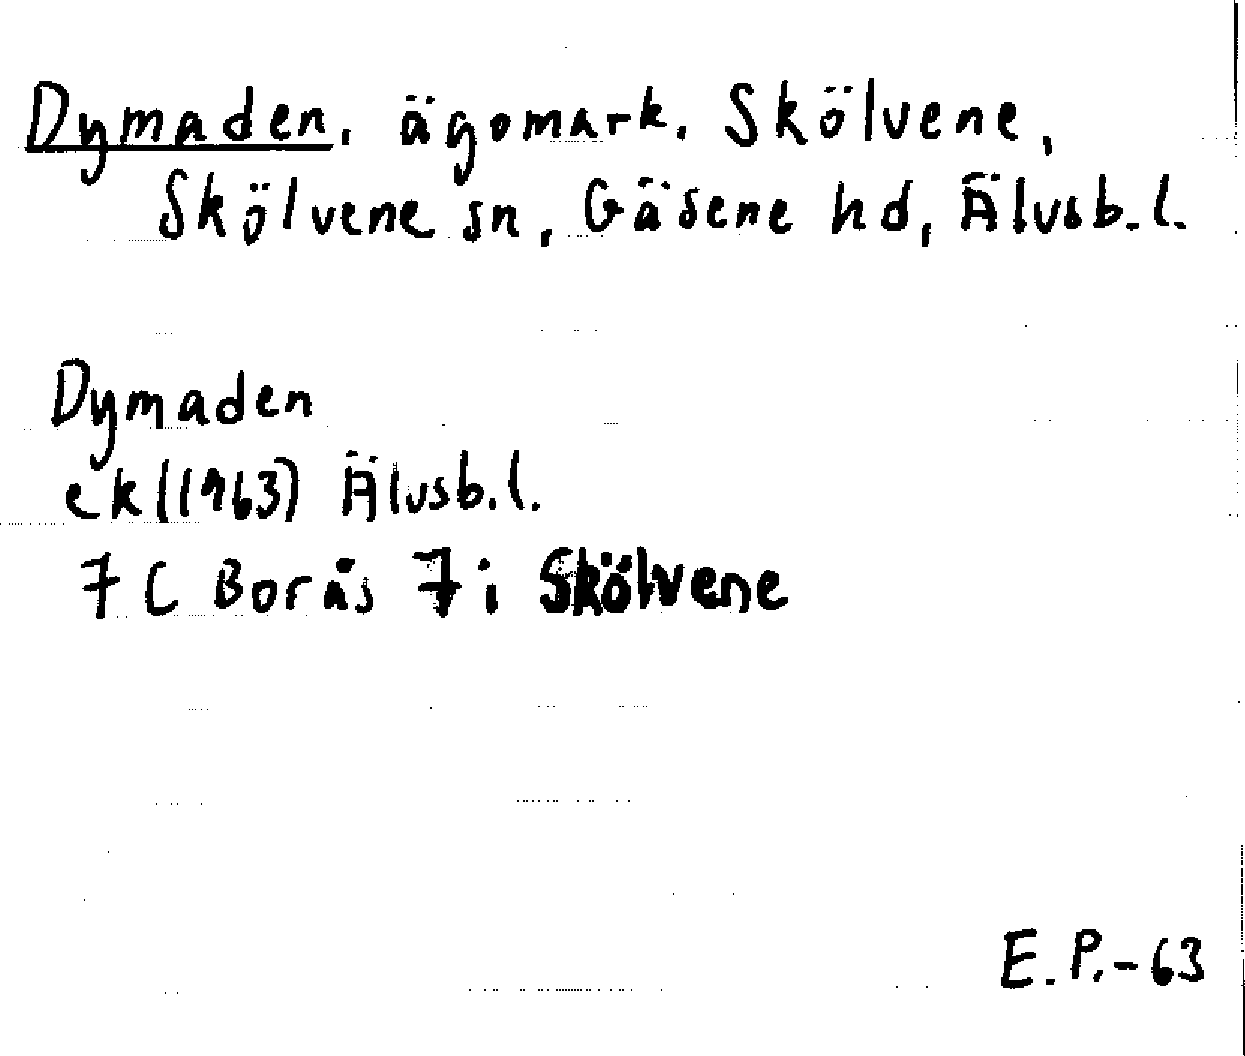 Dymaden, ägomark. Skölvene,
Skölvene sn, Gäsene hd, Älvsb.l.
Dymaden
ek (1963) Älvsb.l.
7 C Borås 7 i Skölvene
E.P.-63